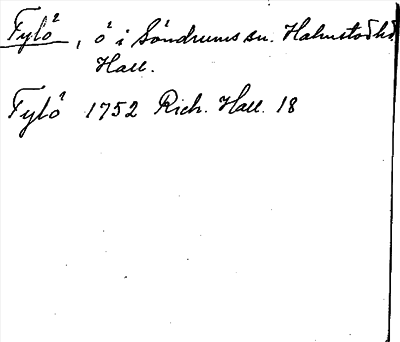 Fylö, ö i Söndrums sn. Halmstads hd
Hall.
Fylö 1752 Rich. Hall. 18